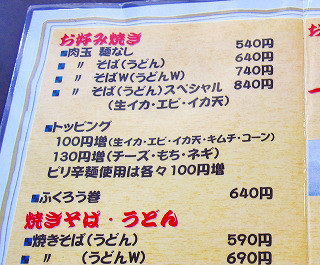 お好み焼き
■肉玉 麺なし 540円
■ 〃 そば(うどん) 640円
■ 〃 そばW(うどんW) 740円
■ 〃 そば(うどん)スペシャル 840円
(生イカ・エビ・イカ天)
■トッピング
100円増(生イカ・エビ・イカ天・キムチ・コーン)
130円増(チーズ・もち・ネギ)
ピリ辛麺使用は各々100円増
■ふくろう巻 640円
焼きそば・うどん
■焼きそば(うどん) 590円
■ 〃 (うどんW) 690円